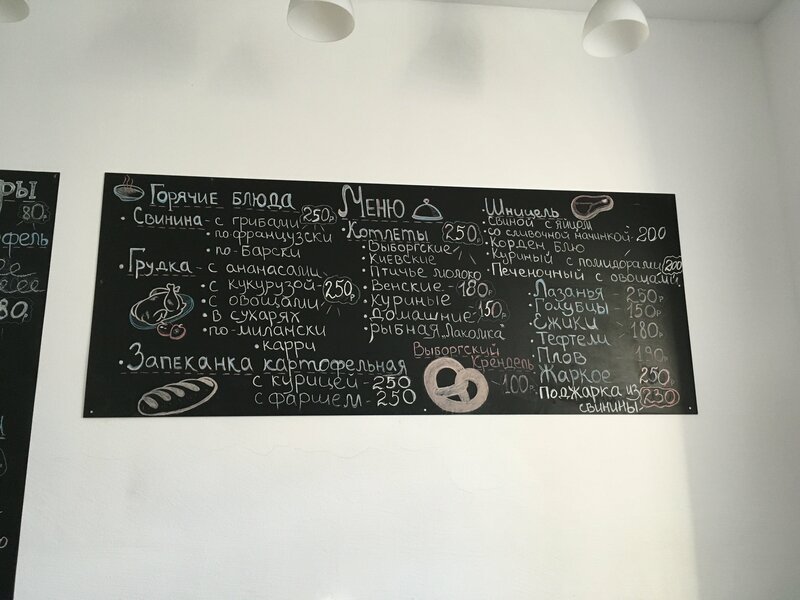 ры
80р.
офель
80р.
Горячие блюда
• Свинина - с грибами 250р
• по-французски
• по-Барски
• Грудка - с ананасами
• с кукурузой - 250р.
• с овощами
• в сухарях
• по-милански
• карри
• Запеканка картофельная
с курицей - 250
с фаршем - 250
Меню
• Котлеты 250р
• Выборгские
• Киевские
• Птичье молоко
• Венские - 180р
• куриные
• домашние - 150р.
• рыбная „Лакомка"
Выборгский
Крендель
100р.
Шницель
• Свиной с яйцом
со сливочной начинкой - 200
• Корден блю
• Куриный с помидорами 200
• Печеночный с овощами
• Лазанья - 250р
• Голубцы - 150р
• Ёжики - 180р.
• Тефтели
• Плов - 190р
• Жаркое - 250р
• Поджарка из 230
свинины